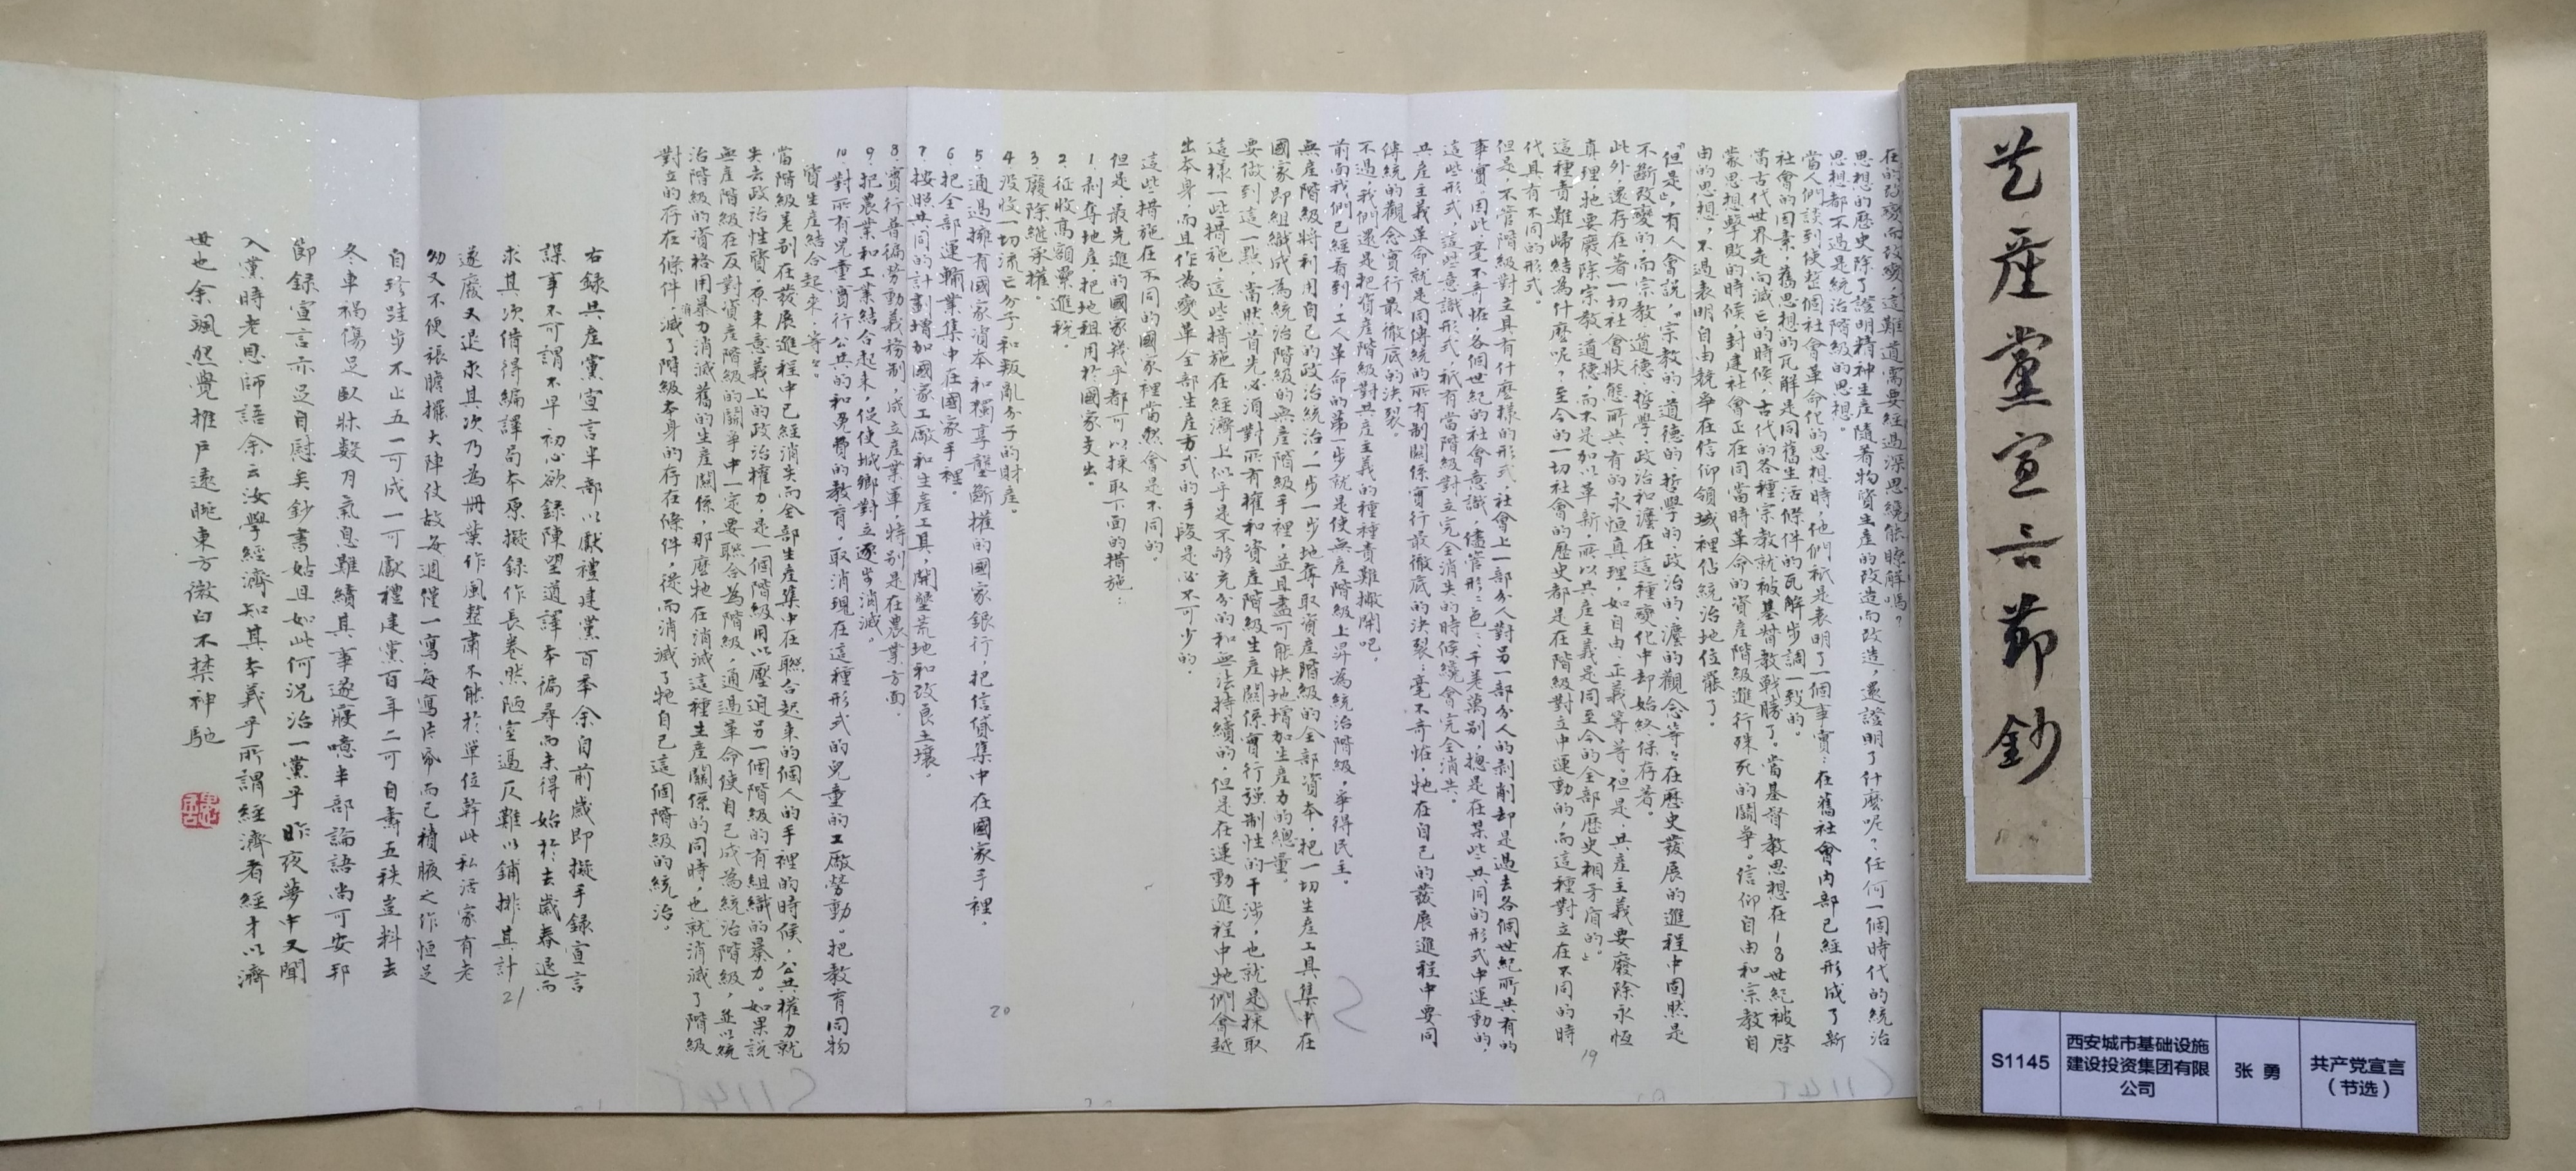 共產黨宣言節鈔
S1145
西安城市基础设施
建设投资集团有限
公司
张 勇
共产党宣言
（节选）
在的改變而改變，這難道需要經過深思纔能瞭解嗎？
思想的歷史除了證明精神生産隨着物質生産的改造而改造，還證明了什麼呢？任何一個時代的統治
思想都不過是統治階級的思想。
當人們談到使整個社會革命化的思想時，他們衹是表明了一個事實：在舊社會内部已經形成了新
社會的因素，舊思想的瓦解是同舊生活條件的瓦解步調一致的。
當古代世界走向滅亡的時候，古代的各種宗教就被基督教戰勝了。當基督教思想在18世紀被啓
蒙思想擊敗的時候，封建社會正在同當時革命的資産階級進行殊死的鬭爭。信仰自由和宗教自
由的思想，不過表明自由競爭在信仰領域裡佔統治地位罷了。
“但是”，有人會説，“宗教的、道德的、哲學的、政治的、灋的觀念等等在歷史發展的進程中固然是
不斷改變的，而宗教、道德、哲學、政治和灋在這種變化中却始終保存着。
此外，還存在着一切社會狀態所共有的永恒真理，如自由、正義等等。但是，共産主義要廢除永恆
真理，牠要廢除宗教、道德，而不是加以革新，所以共産主義是同至今的全部歷史相矛盾的。”
這種責難歸結為什麼呢？至今的一切社會的歷史都是在階級對立中運動的，而這種對立在不同的時
代具有不同的形式。
但是，不管階級對立具有什麼樣的形式，社會上一部分人對另一部分人的剥削却是過去各個世紀所共有的
事實。因此，毫不奇怪，各個世紀的社會意識，儘管形形色色、千差萬别，總是在某些共同的形式中運動的，
這些形式，這些意識形式，衹有當階級對立完全消失的時候纔會完全消失。
共産主義革命就是同傳統的所有制關係實行最徹底的決裂；毫不奇怪，牠在自己的發展進程中要同
傳統的觀念實行最徹底的決裂。
不過，我們還是把資産階級對共産主義的種種責難撇開吧，
前面我們已經看到，工人革命的第一步就是使無産階級上昇為統治階級，爭得民主。
無産階級將利用自己的政治統治，一步一步地奪取資産階級的全部資本，把一切生産工具集中在
國家即組織成為統治階級的無産階級手裡，並且盡可能快地增加生産力的總量。
要做到這一點，當然首先必須對所有權和資産階級生産關係實行強制性的干涉，也就是採取
這樣一些措施，這些措施在經濟上似乎是不够充分的和無法持續的，但是在運動進程中牠們會越
出本身，而且作為變革全部生産方式的手段是必不可少的。
這些措施在不同的國家裡當然會是不同的。
但是，最先進的國家幾乎都可以採取下面的措施：
1.剥奪地産，把地租用於國家支出。
2.征收高額累進税。
3.廢除繼承權。
4.没收一切流亡分子和叛亂分子的財産。
5.通過擁有國家資本和獨享壟斷權的國家銀行，把信貸集中在國家手裡。
6.把全部運輸業集中在國家手裡。
7.按照共同的計劃增加國家工廠和生産工具，開墾荒地和改良土壤。
8.實行普遍勞動義務制，成立産業軍，特别是在農業方面。
9.把農業和工業結合起來，促使城鄉對立逐步消滅。
10.對所有兒童實行公共的和免費的教育，取消現在這種形式的兒童的工廠勞動。把教育同物
質生産結合起來，等等。
當階級差别在發展進程中已經消失而全部生産集中在聯合起來的個人的手裡的時候，公共權力就
失去政治性質。原來意義上的政治權力，是一個階級用以壓迫另一個階級的有組織的暴力。如果説
無産階級在反對資産階級的鬭爭中一定要聯合為階級，通過革命使自己成為統治階級，並以統
治階級的資格用暴力消滅舊的生産關係，那麼牠在消滅這種生産關係的同時，也就消滅了階級
對立的存在條件，消滅了階級本身的存在條件，從而消滅了牠自己這個階級的統治。
右録共産黨宣言半部以獻禮建黨百年余自前歲即擬手録宣言
謀事不可謂不早初心欲録陳望道譯本徧尋而未得始於去歲春退而
求其次借得編譯局本原擬録作長卷然陋室逼仄難以鋪排其計
遂廢又退求其次乃為冊葉作風整肅不能於單位幹此私活家有老
幼又不便裖膽擺大陣仗故每週僅一寫每寫片爾而已積腋之作恒足
自珍跬步不止五一可成一可獻禮建黨百年二可自壽五秩豈料去
冬車禍傷足臥牀數月氣息難續其事遂寢噫半部論語尚可安邦
節録宣言亦足自慰矣鈔書姑且如此何況治一黨乎昨夜夢中又聞
入黨時老恩師語余云汝學經濟知其本義乎所謂經濟者經才以濟
世也余颯然覺推户遠眺東方微白不禁神馳
19
20
21
S1145